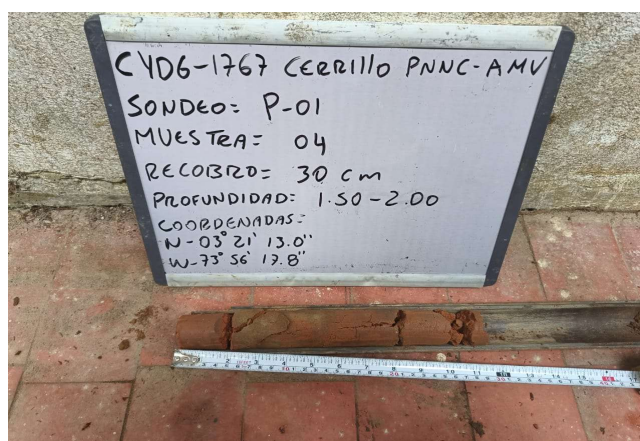 CYDG-1767 CERRILLO PNNC-AMV
SONDEO= P-01
MUESTRA= 04
RECOBRO= 30 cm
PROFUNDIDAD= 1.50-2.00
COORDENADAS=
N-03° 21' 13.0"
W-73° 56' 17.8"